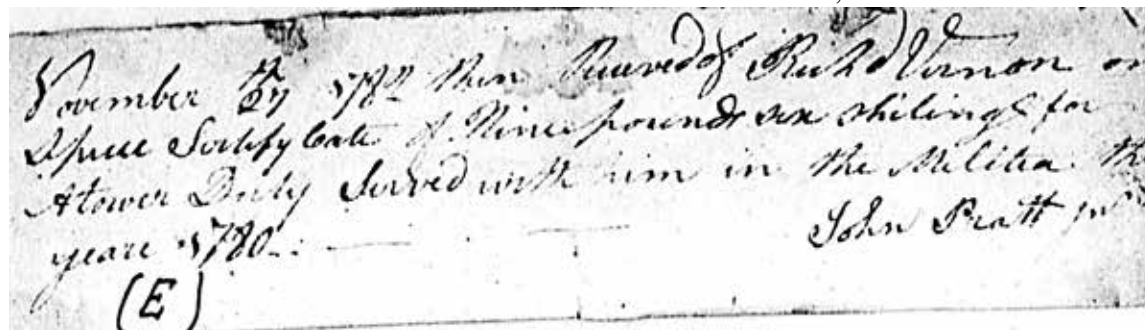 November th 27 178 then Received of Richd Vernon on
Spece Sertifycate of Nine pounds six shilings for
A tower Duty Served with him in the Militea the
yeare 1780
John Pratt
(E)